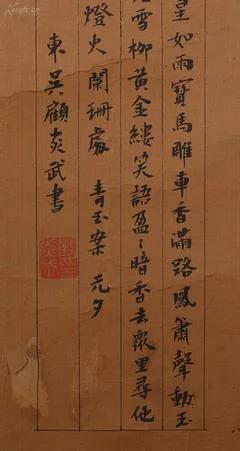 星如雨寶馬雕車香滿路鳳簫聲動玉
雪柳黃金縷笑語盈〻暗香去衆里尋他
燈火闌珊處 青玉案 元夕
東吳顧炎武書